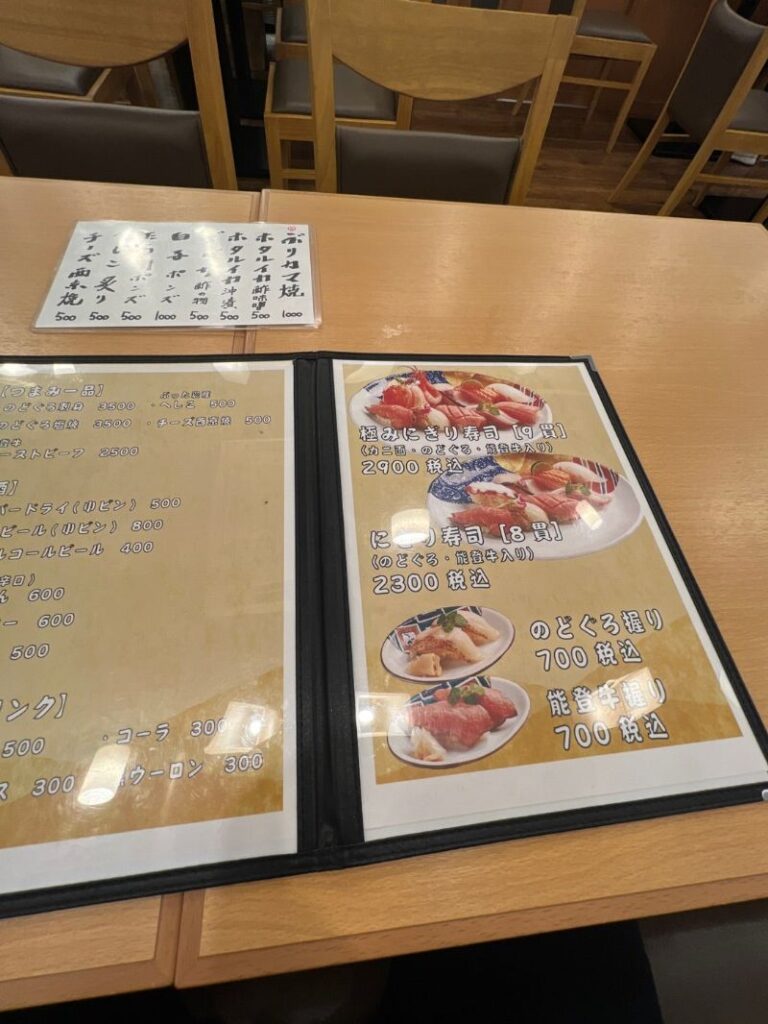 ブリカマ焼 1000
ホタルイカ酢味噌 500
ホタルイカ沖漬 500
酢の物 500
白子ポンズ 1000
ポンズ 500
炙り 500
チーズ西京焼 500
【つまみ一品】
のどぐろ刺身 3500
・へしこ 500
のどぐろ塩焼 3500
・チーズ西京焼 500
ーストビーフ 2500
パードライ(リビン) 500
ビール(リビン) 800
ルコールビール 400
600
ー 600
500
リンク】
500
・コーラ 300
ス 300
ウーロン 300
極みにぎり寿司【9貫】
(カニ面・のどぐろ・能登牛入り)
2900 税込
にぎり寿司【8貫】
(のどぐろ・能登牛入り)
2300 税込
のどぐろ握り
700 税込
能登牛握り
700 税込